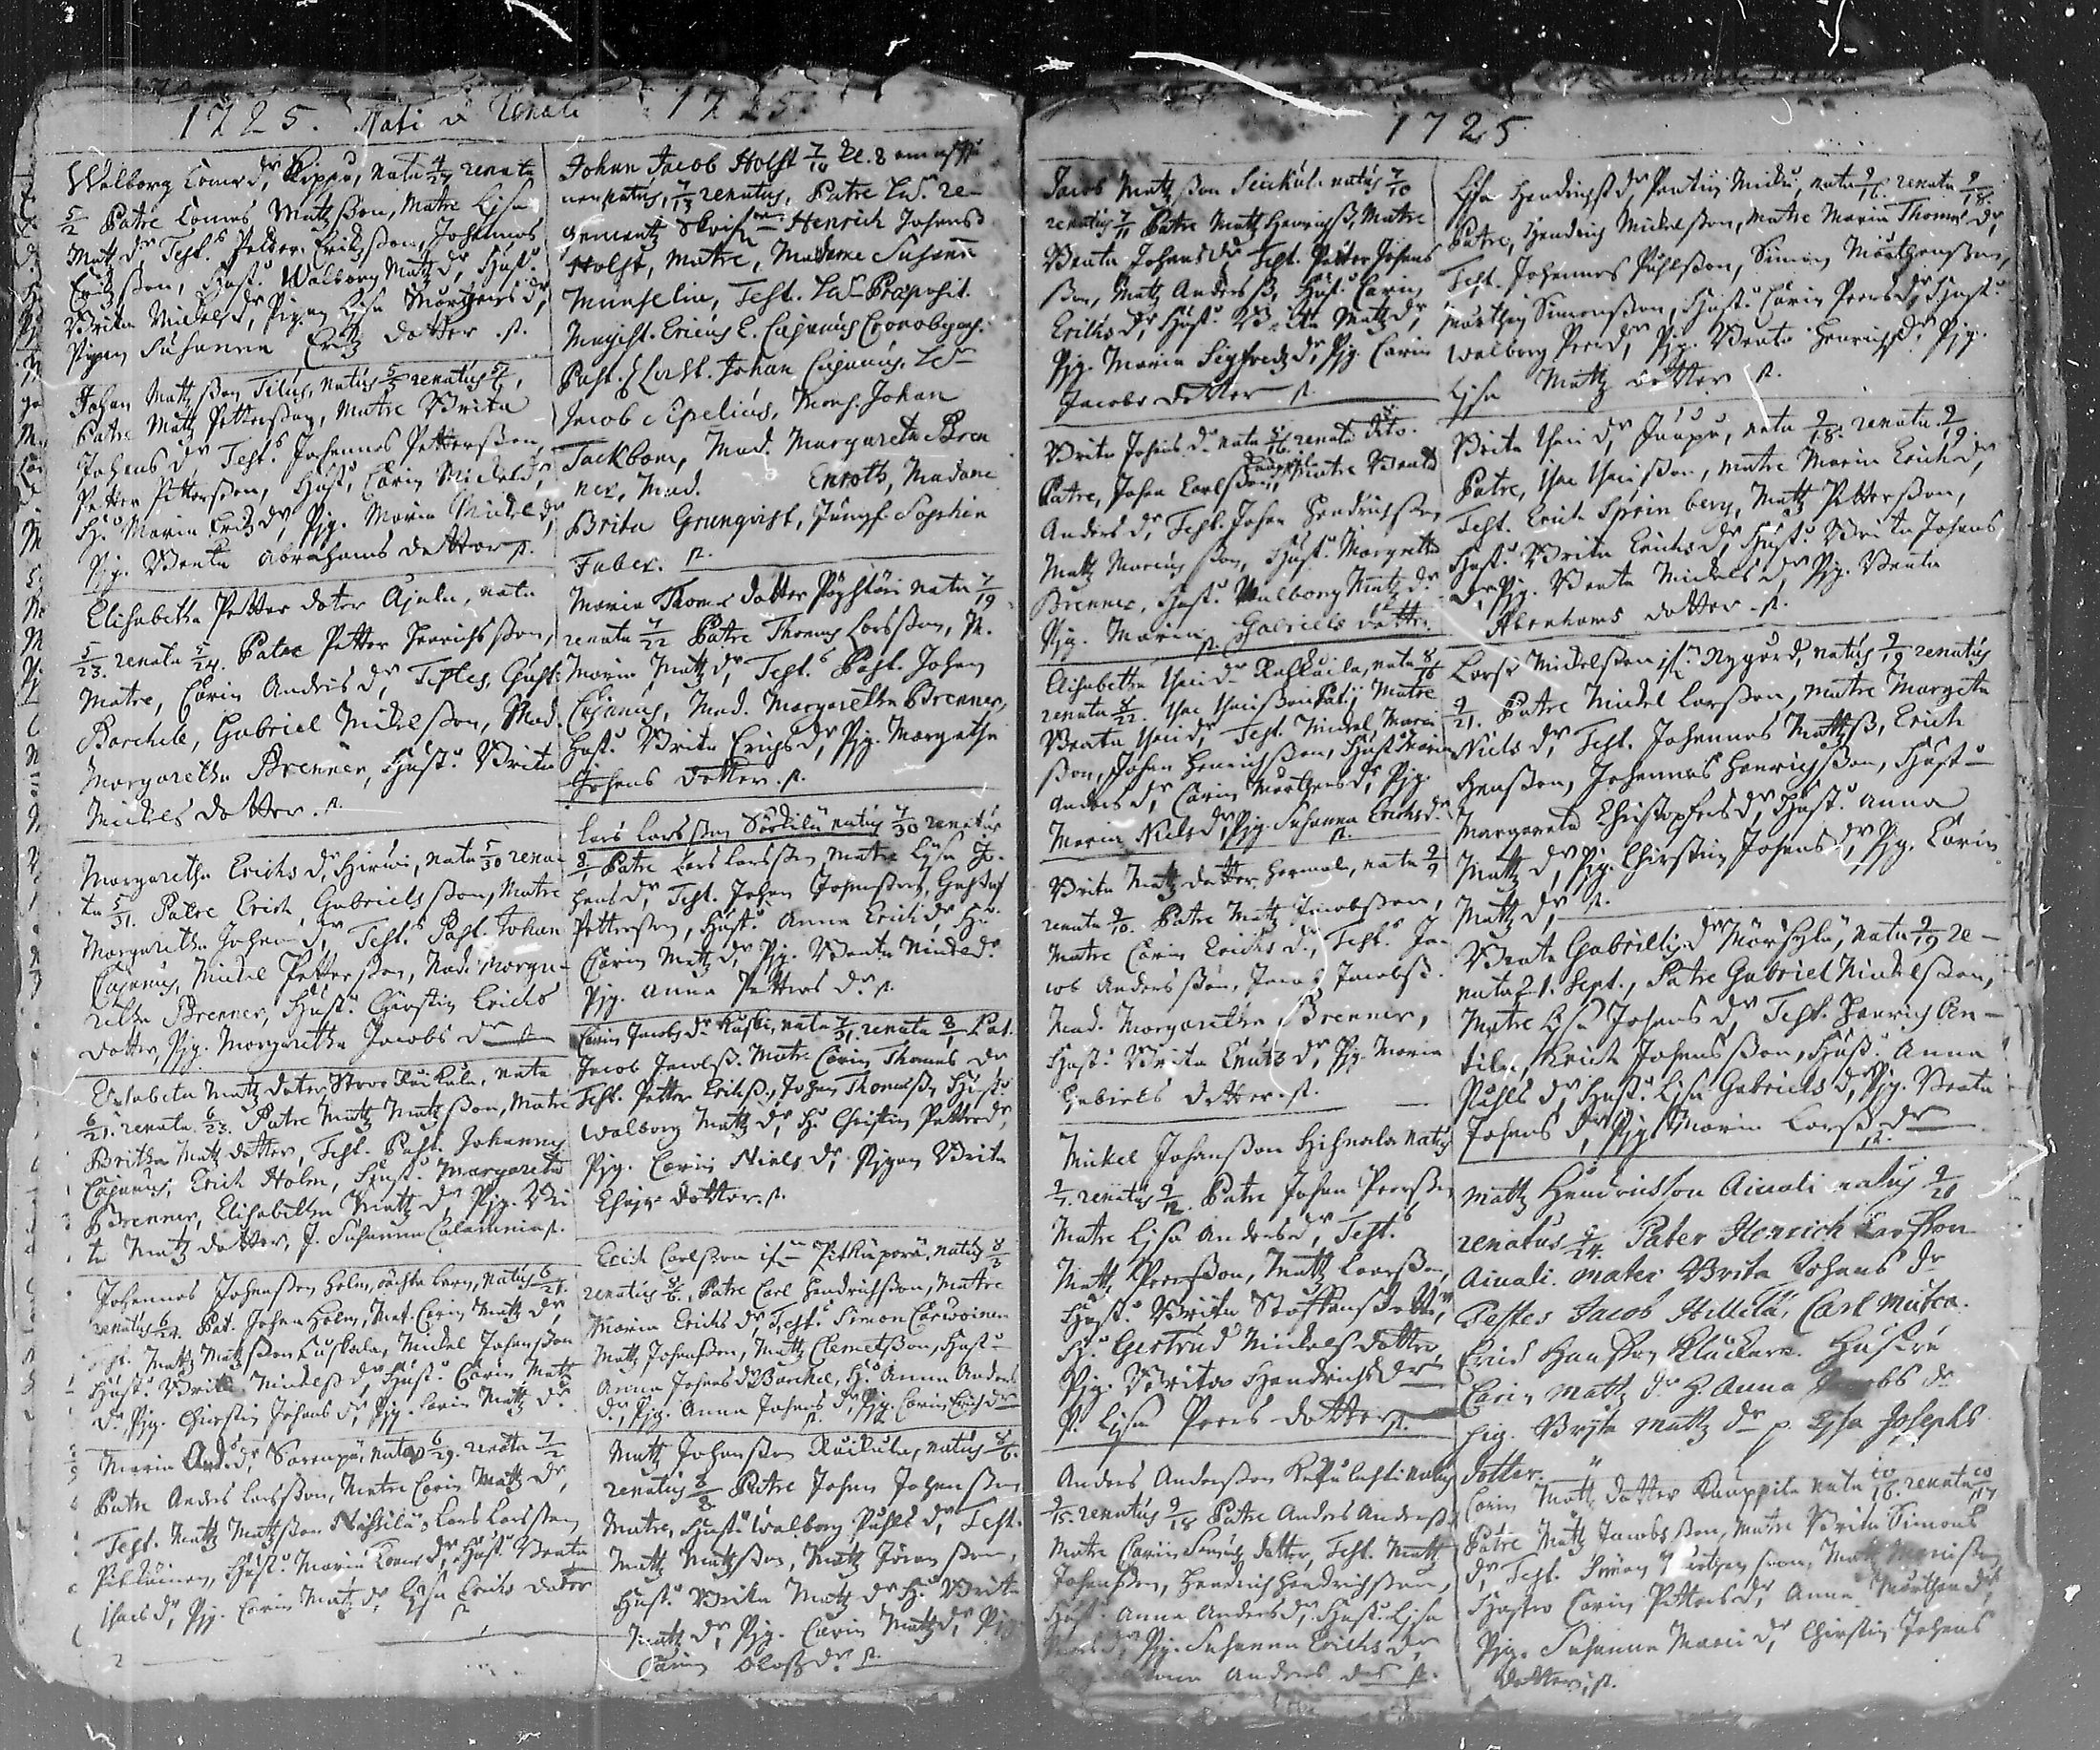 1725. Nati et Renati 1725
Walborg Tomas dr, Kippu, nata 4/27 renata
5/2 Patre Tomas Matzßon, Matre Lisa
Matz dr, Test. Petter Erikßon, Johannes
Erikßon, Hust. Walborg Matz dr, Hust.
Brita Mickels dr, Pigan Lisa Mårtens dr,
Pigan Susanna Erichz dotter
Johan Mattzßon Tilus, natus renatus
Patre Matz Petterßon, Matre Brita
Johans dr, Test. Johannes Petterßon,
Petter Petterßon, Hust. Carin Mickels dr,
H. Maria Erichz dr, Pig. Maria Mickels dr
Pig. Beata Abrahams dotter
Elisabetha Petter doter Ajala, nata
5/23 renata 5/24. Patre Petter Henrichsßon,
Matre, Carin Anders dr, Testes, Gust.
Barckele, Gabriel Mickelßon, Mad.
Margaretha Brenner, Hust. Brita
Mickels dotter
Margretha Erichs dr, Hirwi, nata 5/30 rena-
ta 5/31. Patre Erich Gabrielsßon, Matre
Margaretha Johans dr, Test. Past. Johan
Cajanus, Mickel Petterßon, Mad. Marga-
retha Brenner, Hust. Chirstin Erichs
dotter, Pig. Margretha Jacobs dr
Elisabeta Matz doter Stoor Kuikala, nata
6/21. renata 6/23. Patre Matz Matzßon, Matre
Britha Matz dotter, Test. Past. Johannes
Cajanus, Erich Holm, Hust. Margareta
Brenner, Elisabetha Matz dr, Pig. Bri
ta Matz dotter, J. Susanna Calamnia
Johannes Johanßon Holm, natus 6/21.
renatus 6/24. Pat. Johan Holm, Mat. Carin Matz dr,
Test. Matz Matzßon Luskala, Mickel Johanßon
Hust. Brita Mickelß dr, Hust. Carin Matz
dr Pig. Chirstin Johans dr, Pig. Carin Matz dr
Maria Anders dr, Sorrapu, nata 6/29. renata 7/2
Patre Anders Larsßon, Matre Carin Matz dr,
Test. Matz Matzßon Nihtilä, Lars Larsßon
Pitkänen, Hust. Maria Tomas dr, Hust. Beata
Isacs dr, Pig. Carin Matz dr Lisa Erichs doter
Johan Jacob Holst 7/10 kl. 8
natus, 7/13 renatus, Patre
Henrich Johans
Holst, Matre, Madame Susanna
Munselia, Test. Præposit.
Magist. Ericus E. Cajanus Cronoburg.
Past. Johan Cajanus.
Jacob Sipelius, Mons. Johan
Tackbom, Mad. Margareta Bren
ner, Mad. Enroth, Madame
Brita Grunqvist, Jungf. Sophia
Faber.
Maria Thomas dotter nata 7/19
renata 7/22 Patre Thomas Larsßon, M.
Maria Matz dr, Test. Past. Johan
Cajanus, Mad. Margaretha Brenner,
Hust. Brita Erichs dr, Pig. Margetha
Johans dotter
Lars Larsßon Sorkila natus 7/30 renatus
8/1 Patre Lars Larsßon, Matre Lisa Jo-
hans dr, Test. Johan Johanßon, Gustaf
Petterßon, Hust. Anna Erichs dr, H.
Carin Matz dr, Pig. Beata Mickels dr
Pig. Anna Petters dr
Carin Jacobs dr Kuski, nata 7/31. renata 8/1 Pat.
Jacob Jacobß. Matre Carin Thomas dr
Test. Petter Erichß., Johan Thomasßon Hust.
Walborg Matz dr, H. Christin Petters dr,
Pig. Carin Niels dr, Pigan Brita
Esaias dotter
Erich Carlsson Pitkäperä, natus 8/3
renatus 8/6, Patre Carl Hendrichßon, Matre
Maria Erichs dr, Test. Simon Carwoinen
Matz Johanßon, Matz Clemetßon, Hust.
Anna Johans dr Barckel, H. Anna Anders
dr, Pig. Anna Johans dr, Pig. Carin Erichs dr
Matz Johanßon Kuikala, natus 8/6.
renatus 8/8 Patre Johan Johanßon
Matre, Hust. Walborg Puhls dr, Test.
Matz Matzßon, Matz Jöranßon,
Hust. Brita Matz dr H. Brita
Matz dr, Pig. Carin Matz dr, Pig
Carin Olofz dr
1725
Jacob Matzßon Seickula natus 7/10
renatus 7/11 Patre Matz Henrichß, Matre
Beata Johans dr Test. Petter Johans
ßon, Matz Andersß, Hust. Carin
Erichs dr, Hust. Brita Matz dr,
Pig. Maria Sigfredz dr, Pig. Carin
Jacobs dotter
Brita Johans dr nata 8/16 renata dito.
Patre, Johan Carlßon, Kauppila Matre Beata
Anders dr, Test. Johan Hendrichßon
Matz Mariusßon, Hust. Margretha
Brenner, Hust. Walborg Matz dr
Pig. Maria Gabriels dotter
Elisabetha Isacs dr Raskuila, nata 8/18
renata 8/22. Isac Isacsßon Matre
Beata Isacs dr, Test. Mickel Marcu
ßon, Johan Henrichßon, Hust. Maria
Anders dr, Carin Mårtens dr, Pig.
Maria Niels dr, Pig. Susanna Erichs dr
Brita Matz dotter Hermala, nata 9/7
renata 9/10. Patre Matz Jacobßon,
Matre Carin Erichs dr, Test. Ja-
cob Andersßon, Jacob Jacobß.
Mad. Margaretha Brenner,
Hust. Brita Knutz dr, Pig. Maria
Gabriels dotter
Mickel Johanßon Hihnala natus
9/7. renatus 9/12. Patre Johan Peersßon
Matre Lisa Anders dr, Test.
Matz Peersßon, Matz Larsßon,
Hust. Brita Staffans dotter,
H. Gertrud Mickels dotter
Pig. Brita Hendrichs dr
P. Lisa Peers dotter
Anders Andersßon natus
9/15. renatus 9/18 Patre Anders Andersß
Matre Carin dotter, Test. Matz
Johanßon, Hendrich Hendrichßon,
Hust. Anna Anders dr, Hust. Lisa
dr, Pig. Susanna Erichs dr,
Anders dr
Lisa Hendrichß dr, Pentin Micku, nata 9/16. renata 9/18.
Patre, Hendrich Mickelßon, Matre Maria Thomas dr,
Test. Johannes Puhlßon, Simon Mårtenßon,
Mårten Simonßon, Hust. Carin Peers dr, Hust.
Walborg Peers dr, Pig. Beata Henrichß dr, Pig.
Lisa Matz dotter
Brita Isacs dr, Jaapu, nata 9/18. renata 9/19.
Patre, Isac Isacßon, Matre Maria Erichs dr,
Test. Erich Spirinberg, Matz Petterßon,
Hust. Brita Erichs dr, Hust. Brita Johans
dr, Pig. Beata Mickels dr, Pig. Beata
Abrahams dotter
Lars Mickelßon Nygård, natus 9/19 renatus
9/21. Patre Mickel Larsßon, Matre Margeta
Niels dr, Test. Johannes Matzß, Erich
Hansßon, Johannes Henrichßon, Hust.
Margareta Christophers dr, Hust. Anna
Matz dr, Pig. Chirstin Johans dr, Pig. Carin
Matz dr,
Beata Gabriels dr Mörhylä, nata 9/19 re-
nata 21. Sept., Patre Gabriel Mickelßon,
Matre Lisa Johans dr, Test. Henrich An-
tila, Erich Johansßon, Hust. Anna
Puhls dr, Hust. Lisa Gabriels dr, Pig. Beata
Johans dr, Pig. Maria Larß dr
Mattz Hendricsson Ainali natus 9/20
renatus 9/24. Pater Henrich Larsson
Ainali. Mater Brita Johans dr
Testes Jacob Hillilä, Carl Mutca.
Erich Hansson Kluckare. Hustru
Carin Mattz dr H. Anna Jacobs dr
Pig. Bryta Mattz dr p. Lysa Josephs
dotter.
Carin Matz dotter Kauppila nata 10/16. renata 10/17
Patre Matz Jacobsßon, Matre Brita Simons
dr, Test. Simon Mårtensson, Matz
Hustro Carin Petters dr, Anna Mårtens dr,
Pig. Susanna Marci dr, Chirstin Johans
dotter